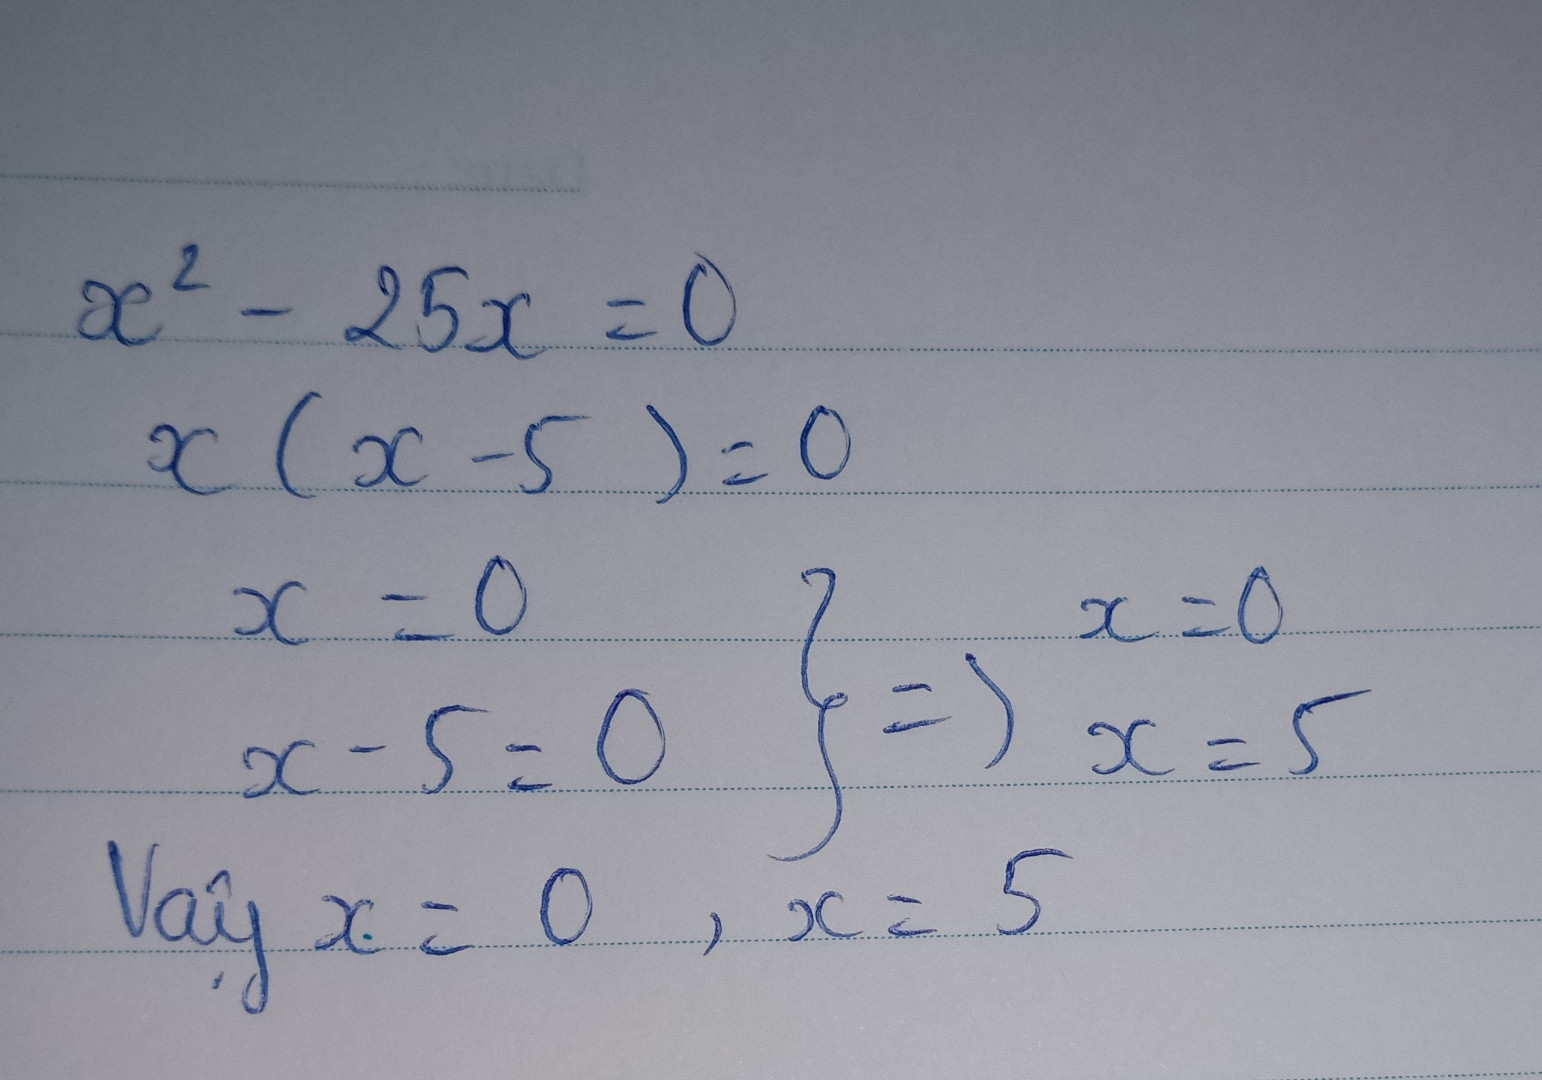 x² - 25x = 0
x ( x - 5 ) = 0
x = 0 } => x = 0
x - 5 = 0 x = 5
Vậy x = 0 , x = 5